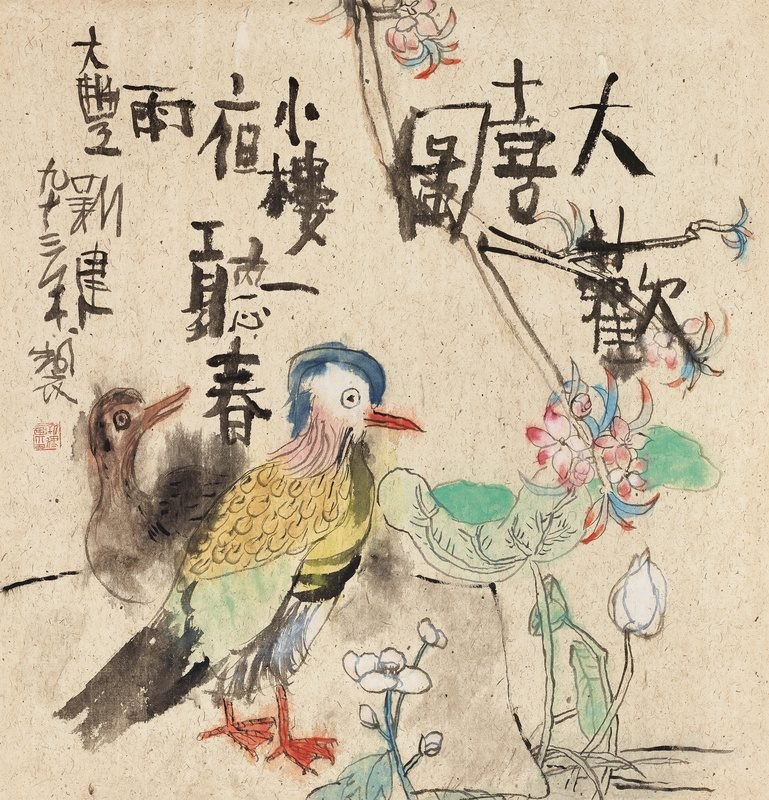 大歡
喜
圖
小樓一
夜聽春
雨
大豐
新建
九十三年製